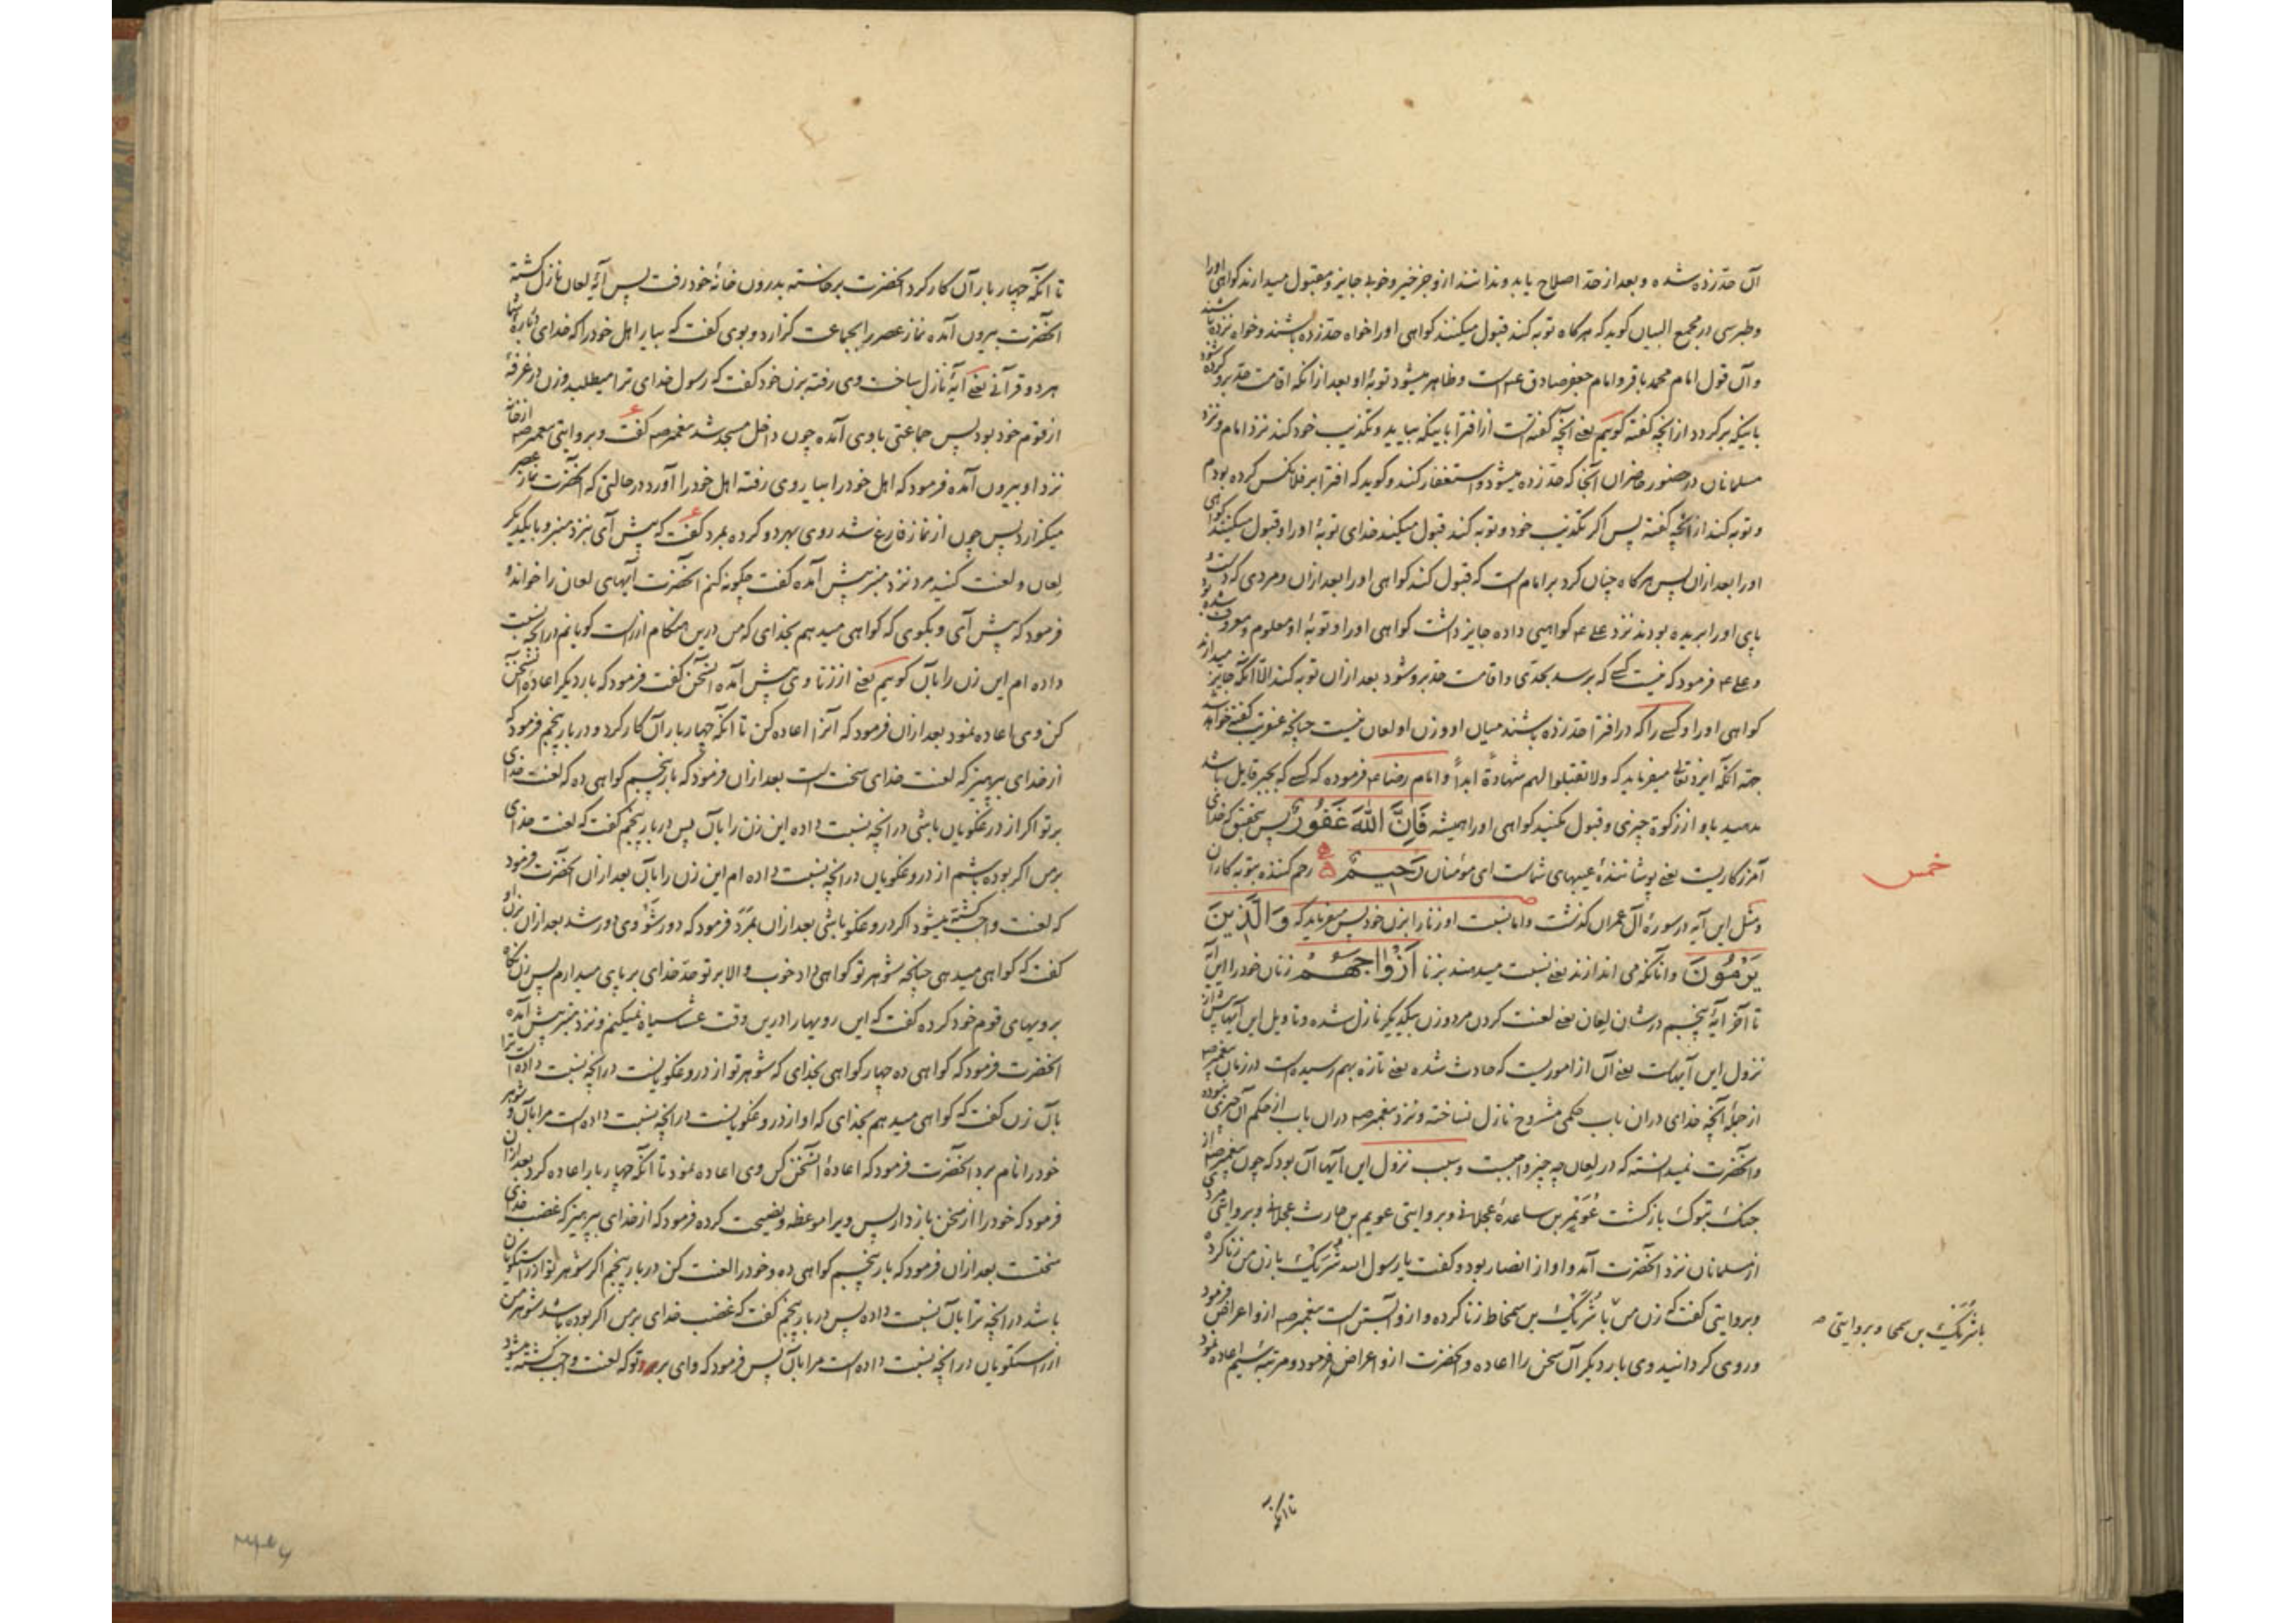 آن حدّ زده شده و بعد از حدّ اصلاح یابد و ندانند ازو جز خیر و خوبی جایز و مقبول میدارند کواهی اورا
و طبرسی در مجمع البیان کوید که هرکاه توبه کند قبول میکنند کواهی اورا خواه حدّ زده باشند و خواه نزده باشند
و آن قول امام محمد باقر و امام جعفر صادق ع است و ظاهر میشود توبهٔ او بعد از انکه اقامت حدّ برو کرده شود
باینکه برکردد از انچه کفته کوییم یعنی آنچه کفته است از افترا باینکه بیاید و تکذیب خود کند نزد امام و نزد
مسلمانان در حضور حاضران آنجا که حدّ زده میشود و استغفار کند و کوید که افترا بر فلانکس کرده بودم
و توبه کند از انچه کفته پس اکر تکذیب خود و توبه کند قبول میکند خدای توبهٔ اورا و قبول میکنند کواهی
اورا بعد ازان پس هرکاه چنان کرد بر امام است که قبول کند کواهی اورا بعد ازان و مردی که دست و
پای اورا بریده بودند نزد علی ع کواهیی داده جایز داشت کواهی اورا و توبهٔ او معلوم و معروف شده بود
و علی ع فرمود که نیست کسی که برسد بحدّی و اقامت حدّ برو شود بعد ازان توبه کند الاّ انکه جایز میدارند
کواهی اورا و کسی را که در افترا حدّ زده باشند میان او و زن او لعان نیست چنانچه عنقریب کفته خواهد شد
جهة انکه ایزد تعالی میفرماید که ولا تقبلوا لهم شهادةً ابداً و امام رضا ع فرموده که کسی که بجبر قایل باشد
مدهید باو از زکوة چیزی و قبول مکنید کواهی اورا همیشه فَاِنَّ اللّٰهَ غَفُورٌ پس بتحقیق که خدای
آمرزکاریست یعنی پوشانندهٔ عیبهای شماست ای مؤمنان رَحِیمٌ رحم کننده بتوبه کاران
خمس
و مثل این آیه در سورهٔ آل عمران کذشت و اما نسبت او زنا را بزن خود پس میفرماید که وَالَّذِینَ
یَرْمُونَ و انانکه می اندازند یعنی نسبت میدهند بزنا اَزْوَاجَهُمْ زنان خودرا این آیه
تا آخر آیهٔ پنجم در شان لِعان یعنی لعنت کردن مرد و زن بیکدیکر نازل شده و تاویل این آیها پیش از
نزول این آیهاست یعنی آن از اموریست که حادث شده یعنی تازه بهم رسیده است در زمان پیغمبر ص
از جملهٔ آنچه خدای دران باب حکمی مشروح نازل نساخته و نزد پیغمبر ص دران باب از حکم آن چیزی نبوده
و آنحضرت نمیدانسته که در لعان چه چیز واجبست و سبب نزول این آیها آن بود که چون پیغمبر ص از
جنک تبوک بازکشت عُوَیْمِر بن ساعدهٔ عجلانی و بروایتی عویم بن حارث عجلانی و بروایتی مردی
از مسلمانان نزد آنحضرت آمد و او از انصار بود و کفت یا رسول الله شُرَیک با زن من زنا کرده
و بروایتی کفت که زن من با شُرَیک بن سمخاط زنا کرده و ازو آبستن است پیغمبر ص ازو اعراض فرمود
با شُرَیک بن سمحا و بروایتی ص
و روی کردانید وی بار دیکر آن سخن را اعاده و آنحضرت ازو اعراض فرمود و مرتبهٔ سیم اعاده نمود
تا انکه
تا انکه چهار بار آن کار کرد آنحضرت برخاسته بدرون خانهٔ خود رفت پس آیهٔ لعان نازل کشته
آنحضرت بیرون آمده نماز عصر را بجماعت کزارد و بوی کفت که بیار اهل خودرا که خدای در بارهٔ شما
هر دو قرآنی یعنی آیهٔ نازل ساخت وی رفته بزن خود کفت که رسول خدای ترا میطلبد و زن در غرفهٔ
از قوم خود بود پس جماعتی با وی آمده چون داخل مسجد شد پیغمبر ص کفت و بروایتی پیغمبر ص از خانه
نزد او بیرون آمده فرمود که اهل خودرا بیار وی رفته اهل خودرا آورد در حالتی که آنحضرت نماز عصر
میکزارد پس چون از نماز فارغ شد روی بهر دو کرده بمرد کفت که پیش آی نزد منبر و با یکدیکر
لعان و لعنت کنید مرد نزد منبر پیش آمده کفت چکونه کنم آنحضرت آیهای لعان را خوانده
فرمود که پیش آی و بکوی که کواهی میدهم بخدای که من درین هنکام از راست کویانم در انچه نسبت
داده ام این زن را بآن کوییم یعنی از زنا وی پیش آمده آن سخن کفت فرمود که بار دیکر اعادهٔ آن سخن
کن وی اعاده نمود بعد ازان فرمود که آنرا اعاده کن تا آنکه چهار بار آن کار کرد و در بار پنجم فرمود که
از خدای بپرهیز که لعنت خدای سخت است بعد ازان فرمود که بار پنجم کواهی ده که لعنت خدای
بر تو اکر از دروغکویان باشی در انچه نسبت داده این زن را بآن پس در بار پنجم کفت که لعنت خدای
بر من اکر بوده باشم از دروغکویان در انچه نسبت داده ام این زن را بآن بعد ازان آنحضرت فرمود
که لعنت واجب کشته میشود اکر دروغکو باشی بعد ازان بمرد فرمود که دور شو وی دور شد بعد ازان بزن او
کفت که کواهی میدهی چنانچه شوهر تو کواهی داد خوب والا بر تو حدّ خدای بر پای میدارم پس زن نکاه
برویهای قوم خود کرده کفت که این رویها را درین وقت عشا سیاه نمیکنم و نزد منبر پیش آمده
آنحضرت فرمود که کواهی ده چهار کواهی بخدای که شوهر تو از دروغکویانست در انچه نسبت داده است ترا
بآن زن کفت که کواهی میدهم بخدای که او از دروغکویانست در انچه نسبت داده است مرا بآن و شوهر
خودرا نام برد آنحضرت فرمود که اعادهٔ آن سخن کن وی اعاده نمود تا آنکه چهار بار اعاده کرد بعد ازان
فرمود که خودرا از سخن باز دار پس ویرا موعظه و نصیحت کرده فرمود که از خدای بپرهیز که غضب خدای
سختست بعد ازان فرمود که بار پنجم کواهی ده و خودرا لعنت کن در بار پنجم اکر شوهر تو از راستکویان
باشد در انچه ترا بآن نسبت داده پس در بار پنجم کفت که غضب خدای بر من اکر بوده باشد شوهر من
از راستکویان در انچه نسبت داده است مرا بآن پس فرمود که وای بر تو که لعنت واجب کشته میشود